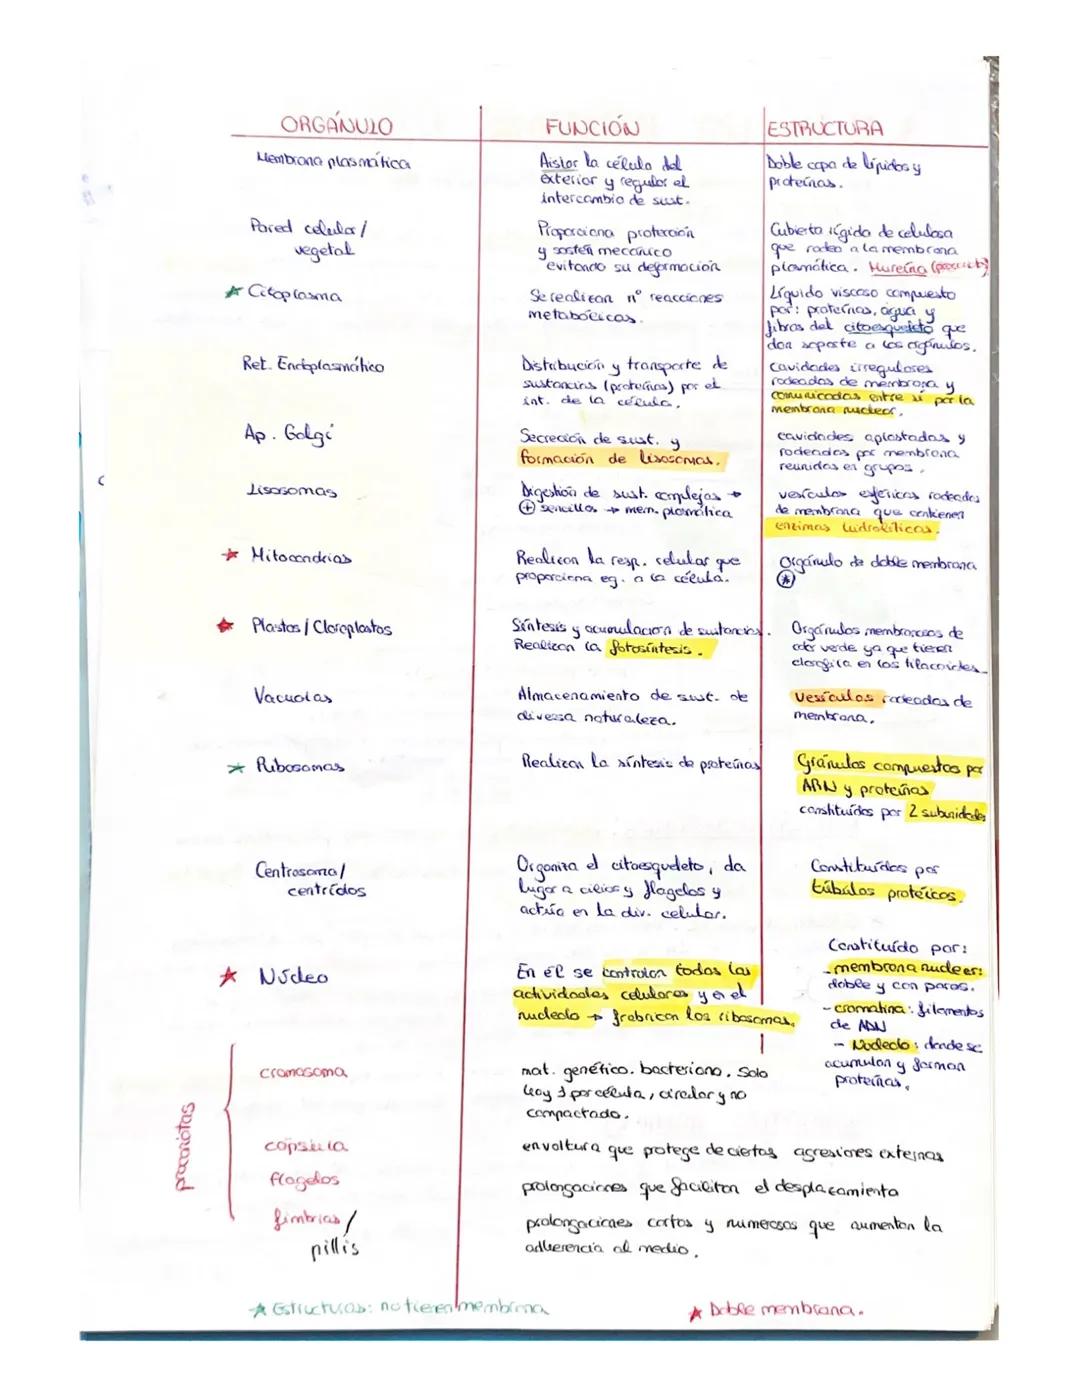 ORGÁNULO FUNCIÓN ESTRUCTURA
Membrana plasmática
Aislar la célula del
exterior y regular el
intercambio de sust.
Doble capa de lípidos y
proteínas.
Pared celular/
vegetal
Proporciona protección
y sostén mecánico
evitando su deformación
Cubierta rígida de celulosa
que rodea a la membrana
plasmática. Mureína
★ Citoplasma
Se realizan nº reacciones
metabólicas.
Líquido viscoso compuesto
por: proteínas, agua y
fibras del citoesqueleto que
dan soporte a los orgánulos.
Ret. Endoplasmático
Distribución y transporte de
sustancias (proteínas) por el
int. de la célula.
cavidades irregulares
rodeadas de membrana y
comunicadas entre sí por la
membrana nuclear.
Ap. Golgi
Secreción de sust. y
formación de lisosomas.
cavidades aplastadas y
rodeadas por membrana
reunidas en grupos.
Lisosomas
Digestión de sust. complejas →
⊕ sencillos → mem. plasmática
vesículas esféricas rodeadas
de membrana que contienen
enzimas hidrolíticas.
★ Mitocondrias
Realizan la resp. celular que
proporciona eg. a la célula.
Orgánulo de doble membrana
★ Plastos / Cloroplastos
Síntesis y acumulación de sustancias.
Realizan la fotosíntesis.
Orgánulos membranosos de
color verde ya que tienen
clorofila en los tilacoides
Vacuolas
Almacenamiento de sust. de
diversa naturaleza.
Vesículas rodeadas de
membrana.
★ Ribosomas
Realizan la síntesis de proteínas
Gránulos compuestos por
ARN y proteínas
constituídos por 2 subunidades
Centrosoma/
centriolos
Organiza el citoesqueleto, da
lugar a cilios y flagelos y
actúa en la div. celular.
Constituídos por
túbulos protéicos.
★ Núcleo
En él se controlan todas las
actividades celulares y en el
nucleolo → frabrican los ribosomas.
Constituído por:
- membrana nuclear:
doble y con poros.
- cromatina: filamentos
de ADN
- Nucleolo: donde se
acumulan y forman
proteínas.
procariotas
cromosoma
mat. genético. bacteriano. Solo
hay 1 por célula, circular y no
compactado.
cápsula
envoltura que protege de ciertas agresiones externas
flagelos
prolongaciones que facilitan el desplazamiento
fimbrias/
pillis
prolongaciones cortas y numerosas que aumentan la
adherencia al medio.
★ Estructuras: no tienen membrana
★ Doble membrana.